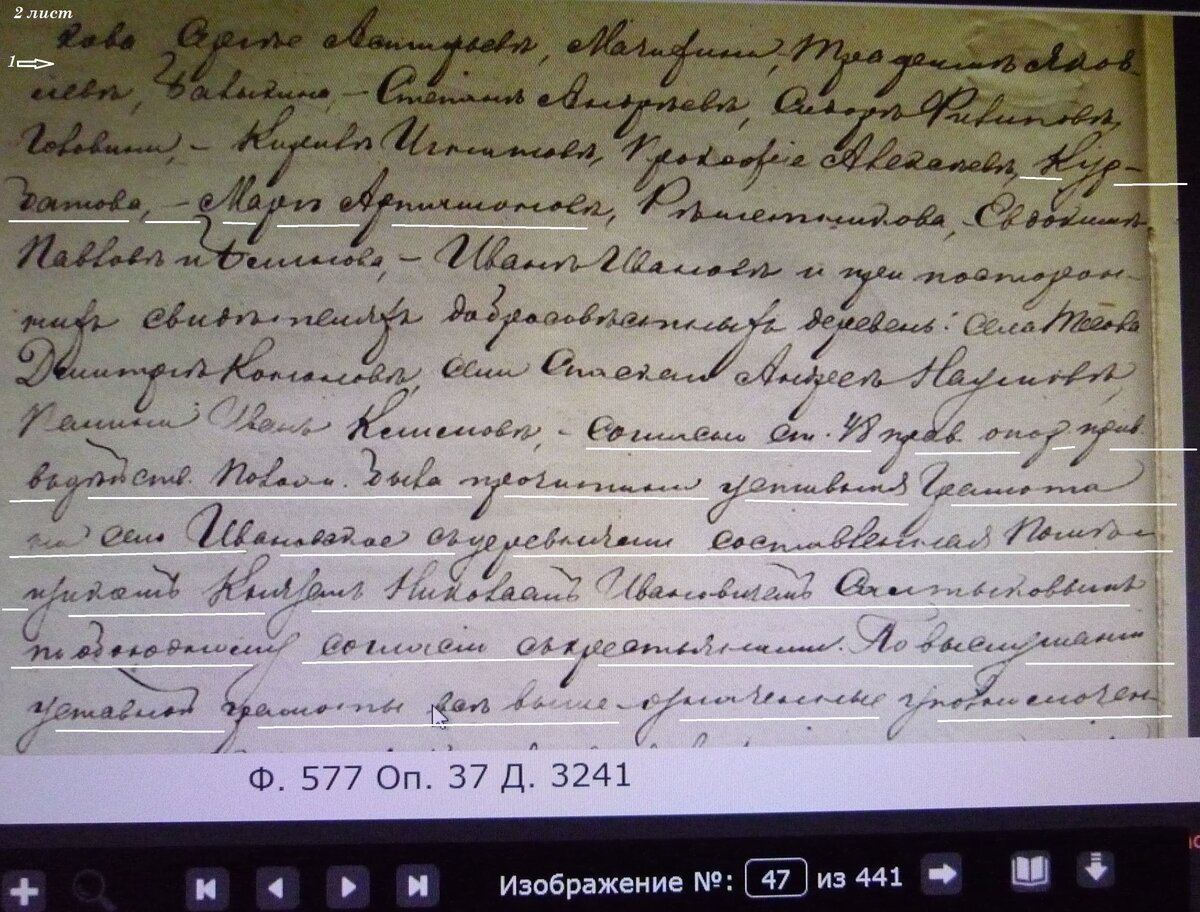 2 лист
кова Сергъе Леонтьевъ, Мачихина, Терентий Яков-
1
левъ, Бавыкина, – Степанъ Андреевъ, Сидоръ Филиповъ,
– Кирилъ Игнатовъ, Прокофiе Алексеевъ, Кур-
батова, – Марко Артамоновъ, Решетникова, – Евдокимъ
Павловъ и – Иванъ Ивановъ и при посторон-
нихъ свидътеляхъ добросовъстныхъ деревень: села
Дмитрiй села Спаскаго Андрей Наумовъ,
Иванъ – согласно ст. 48 прав. о пор. прив.
в дъйств. Полож. была прочитана уставная Грамота
на село Ивановское съ деревнями составленная Помъщ
Княземъ Николаемъ Ивановичемъ Салтыковымъ
по обоюдному согласiю съ крестьянами. По выслушанiи
уставной грамоты всъ выше означенные уполномочен-
Ф. 577 Оп. 37 Д. 3241
Изображение №: 47 из 441